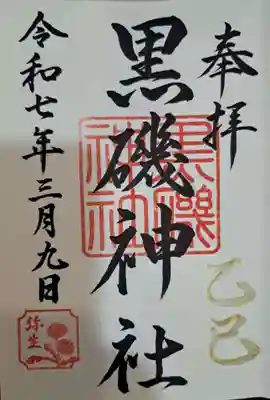 奉拝
乙巳
黒磯神社
黒磯神社
令和七年三月九日
弥生